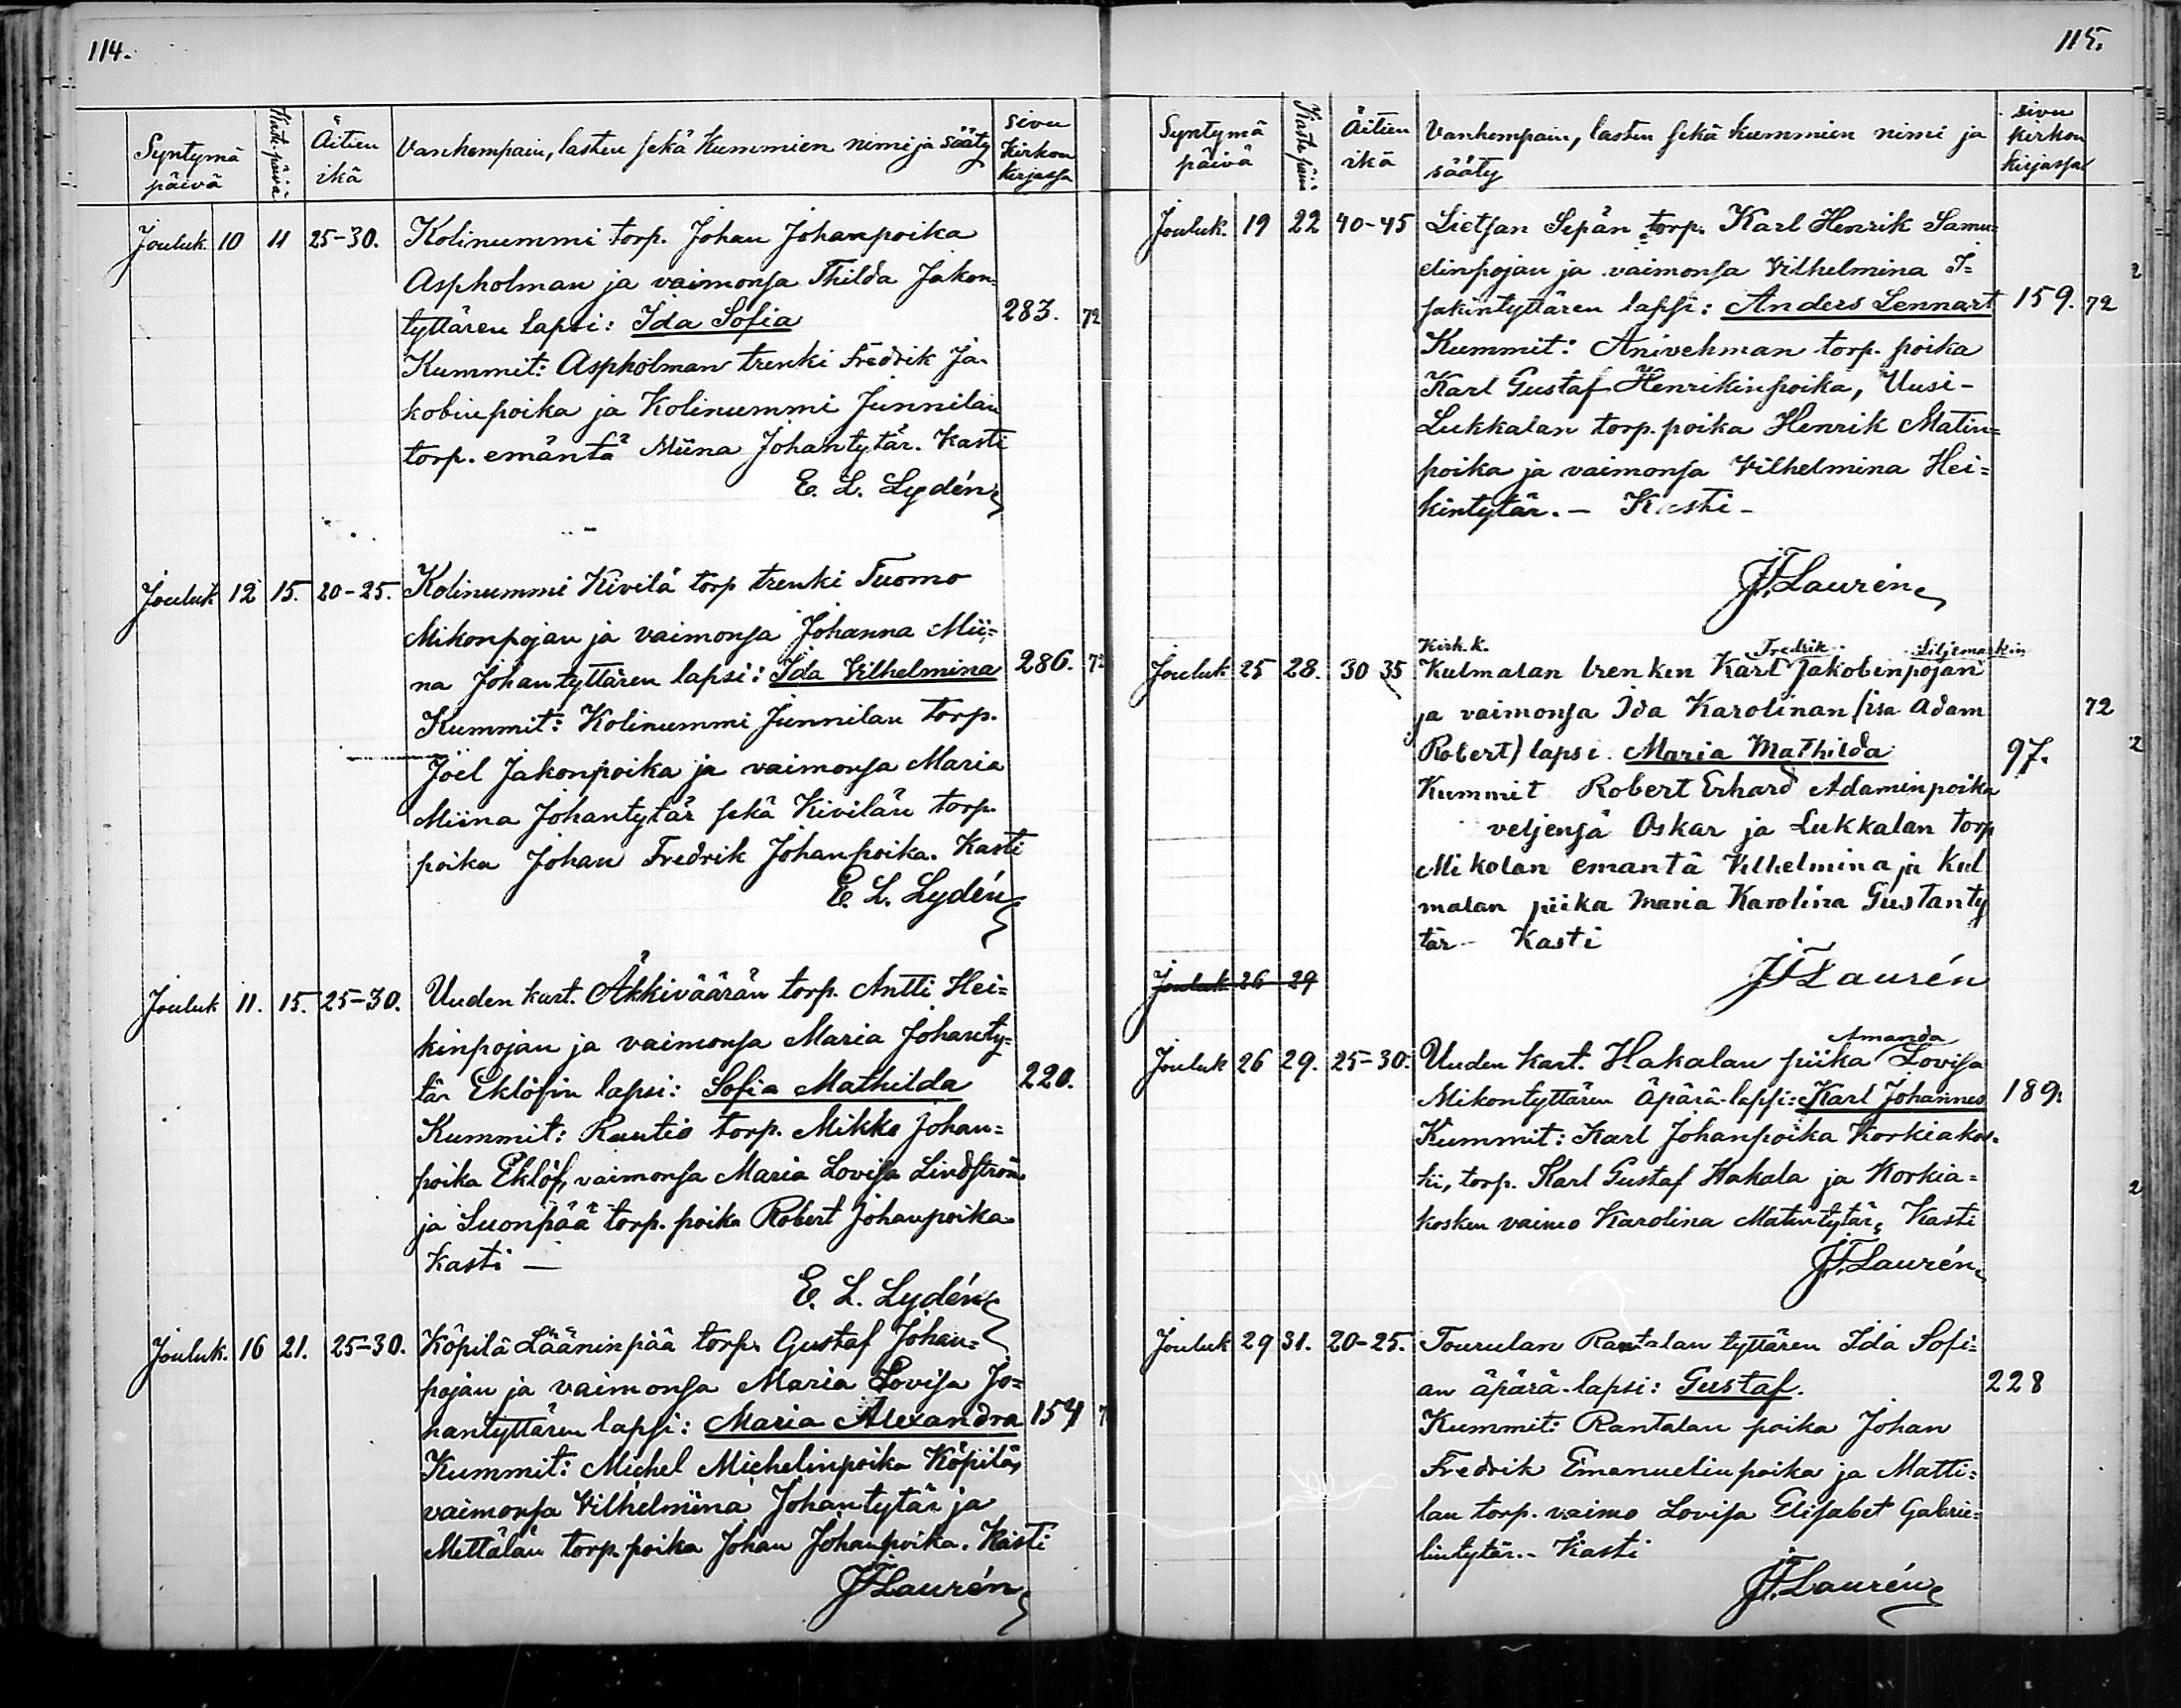 114.
Syntymä päivä
Kaste-päivä
Äitien ikä
Vanhempain, lasten sekä Kummien nimi ja sääty
Sivu Kirkon kirjassa
Jouluk. 10 11 25-30. Kolinummi torp. Johan Johanpoika
Aspholman ja vaimonsa Thilda Jakon-
tyttären lapsi: Ida Sofia 283. 72
Kummit: Aspholman trenki Fredrik Ja-
kobinpoika ja Kolinummi Junnilan
torp. emäntä Miina Johantytär. Kasti
E. L. Lydén
Jouluk 12 15. 20-25. Kolinummi Kivilä torp trenki Tuomo
Mikonpojan ja vaimonsa Johanna Mii=
na Johantyttären lapsi: Ida Vilhelmina 286. 72
Kummit: Kolinummi Junnilan torp.
Joel Jakonpoika ja vaimonsa Maria
Miina Johantytär sekä Kivilän torp.
poika Johan Fredrik Johanpoika. Kasti
E. L. Lydén
Jouluk 11. 15. 25-30. Uuden kart. Äkkiväärän torp. Antti Hei=
kinpojan ja vaimonsa Maria Johanty=
tär Eklöfin lapsi: Sofia Mathilda 220.
Kummit: Rautio torp. Mikko Johan=
poika Eklöf, vaimonsa Maria Lovisa Lindström
ja Suonpää torp. poika Robert Johanpoika
Kasti —
E. L. Lydén
Jouluk. 16 21. 25-30. Köpilä Lääninpää torp. Gustaf Johan=
pojan ja vaimonsa Maria Lovisa Jo=
hantyttären lapsi: Maria Alexandra 154 7
Kummit: Michel Michelinpoika Köpilä,
vaimonsa Vilhelmiina Johantytär ja
Mettälän torp. poika Johan Johanpoika. Kasti
JF Laurén
115.
Syntymä päivä
Kaste päivä
Äitien ikä
Vanhempain, lasten sekä kummien nimi ja
sääty
sivu kirkon kirjassa
Jouluk. 19 22 40-45 Lietsan Sepän torp. Karl Henrik Samu=
elinpojan ja vaimonsa Vilhelmina I=
sakintyttären lapsi: Anders Lennart 159. 72
Kummit: Anivehman torp. poika
Karl Gustaf Henrikinpoika, Uusi-
Lukkalan torp. poika Henrik Matin=
poika ja vaimonsa Vilhelmina Hei=
kintytär. — Kasti —
J.F. Laurén
Kirk. k. Fredrik Liljemarkin
Jouluk 25 28. 30 35 Kulmalan trenkin Karl Jakobinpojan
ja vaimonsa Ida Karolinan (isa Adam 72
Robert) lapsi. Maria Mathilda 97.
Kummit Robert Erhard Adaminpoika
veljensä Oskar ja Lukkalan torp
Mikolan emantä Vilhelmina ja Kul
malan piika Maria Karolina Gustanty
tär - Kasti
JF Laurén
Jouluk 26 29
Amanda
Jouluk 26 29. 25-30. Uuden kart. Hakalan piika Lovisa
Mikontyttären äpärä-lapsi: Karl Johannes 189.
Kummit: Karl Johanpoika Korkiakos-
ki, torp. Karl Gustaf Hakala ja Korkia=
kosken vaimo Karolina Matintytär. Kasti
J.F. Laurén
Jouluk 29 31. 20-25. Tourulan Rantalan tyttären Ida Sofi=
an äpärä-lapsi: Gustaf. 228
Kummit: Rantalan poika Johan
Fredrik Emanuelinpoika ja Matti=
lan torp. vaimo Lovisa Elisabet Gabrie=
lintytär. - Kasti
J.F. Laurén